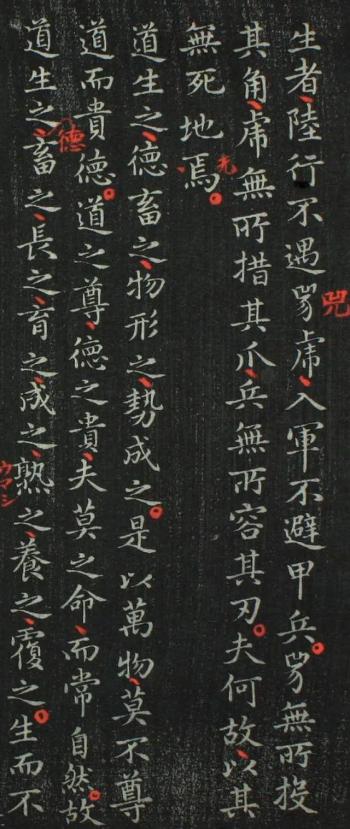 生者、陸行不遇兕虎、入軍不避甲兵。兕無所投
兕
其角、虎無所措其爪、兵無所容其刃。夫何故、以其
無死地焉。
道生之、德畜之、物形之、勢成之。是以萬物、莫不尊
道而貴德。道之尊、德之貴、夫莫之命、而常自然。故
道生之、畜之、長之、育之、成之、熟之、養之、覆之。生而不
德
ウマシ